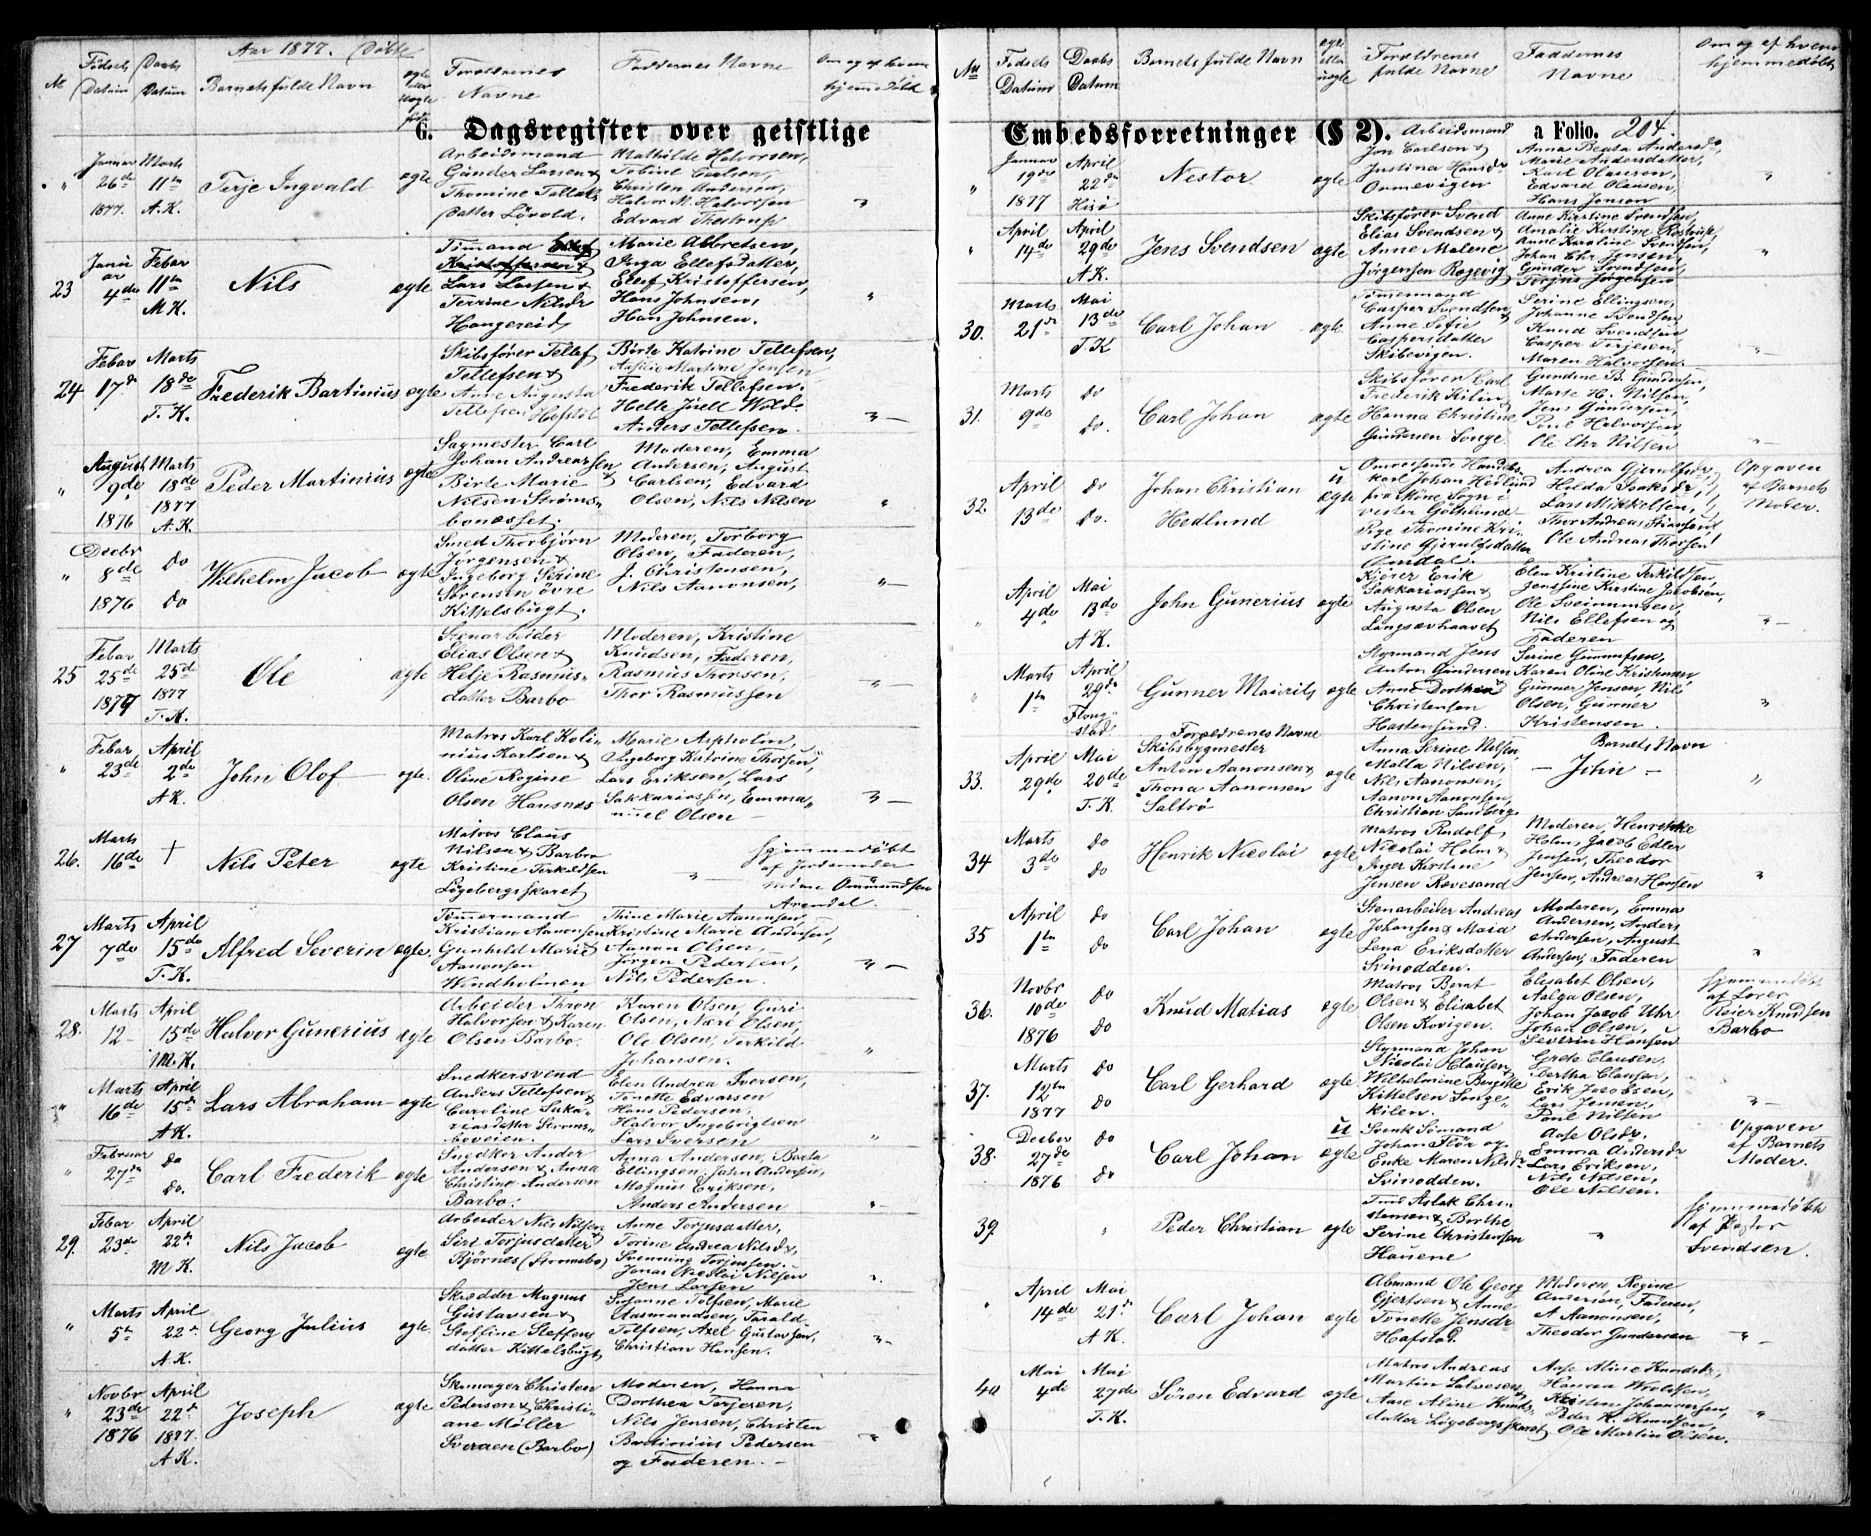 Aar 1877. Døbte
№ Fødsels Datum Daabs Datum Barnets fulde Navn ægte eller uægte født Forældrenes Navne Faddernes Navne Om og af hvem hjemmedøbt
G. Dagsregister over geistlige
" Januar 26de 1877. Marts 11te A.K. Terje Ingvald ægte
Arbeidsmand
Gunder Larsen &
Thomine Tellefs
datter Løvold.
Mathilde Halvorsen,
Tobine Carlsen,
Christen Andersen,
Halvor M. Halvorsen
Edvard Thestrup
"
23 Januar 4de Febar 11te M.K. Nils ægte
Tømand
Kristoffersen &
Lars Larsen &
Terrine Nilsdr
Hangereid
Marie Albretsen,
Inga Ellefsdatter,
Ellef Kristoffersen,
Hans Johnsen,
Han Johnsen.
"
24 Febar 17de Marts 18de T.K. Frederik Bartinius ægte
Skibsfører Tellef
Tellefsen &
Anne Augusta
Tellefsen Hofstøl
Birte Katrine Tellefsen,
Martine Jensen
Frederik Tellefsen.
Helle Juell Wold
Anders Tellefsen.
"
" August 9de 1876 Marts 18de 1877 A.K. Peder Martinius ægte
Sagmester Carl
Johan Andreassen
Birte Marie &
Nilsen Strøms-
bonæsset.
Moderen, Emma
Andersen, August
Carlsen, Edvard
Olsen, Nils Nilsen
"
" Decbr 8de 1876 do do Wilhelm Jacob ægte
Smed Thorbjørn
Jørgensen &
Ingeborg Serine
Sørensen øvre
Kittelsbugt.
Moderen, Torborg
Olsen, Faderen,
J. Christensen,
Nils Aanonsen,
"
25 Febar 25de 1877 Marts 25d 1877 T.K. Ole ægte
Stenarbeider
Elias Olsen &
Helje Rasmus-
datter Barbo
Moderen, Kristine
Knudsen, Faderen,
Rasmus Thorsen,
Thor Rasmussen
"
" Febar 23de April 2de A.K. John Olof ægte.
Matros Karl Koli-
nius Karlsen &
Oline Regine
Olsen Hansnæs
Marie Aspholm,
Ingeborg Katrine Thorsen,
Lars Eriksen, Lars
Sakkariassen, Emma-
nuel Olsen
"
26. Marts 16de † Nils Peter ægte
Matros Claus
Nilsen & Barbro
Kristine Terkeldsen
Løgebergsskaret
"
Hjemmedøbt
af Jordemoder
Ommundsen
Arendal.
27 Marts 7de April 15de T.K. Alfred Severin ægte.
Tømmermand
Kristian Aanonsen
Gunhild Marie
Aanonsen
Windholmen
Thine Marie Aanonsen,
Kristine Marie Andersen,
Aanon Olsen
Jørgen Pedersen,
Nils Pedersen.
"
28. Marts 12 April 15de M.K. Halvor Gunerius ægte
Arbeider Thron
Halvorsen & Karen
Olsen Barbo.
Karen Olsen, Guri
Olsen, Næri Olsen,
Ole Olsen, Terkild
Johansen.
"
" Marts 16de April 15de A.K. Lars Abraham ægte
Snedkersvend
Anders Tellefsen &
Caroline Saka-
riasdatter Strøms-
boveien.
Elen Andrea Iversen,
Tonette Edvarsen
Hans Pedersen,
Halvor Ingebrigtsen
Lars Iversen
"
" Februar 27de do do. Carl Frederik ægte
Snedker Ander
Andersen & Anna
Christine Andersen
Barbo.
Anna Andersen, Berta
Ellingsen, John Andersen,
Magnus Eriksen,
Anders Andersen
"
29. Febar 23de April 22de M.K. Nils Jacob ægte
Arbeider Nils Nilsen
Siri Torjusdatter &
Bjørnes (Strømsbo)
Anne Torjusdatter,
Torine Andrea Nilsdr,
Svenning Torjussen.
Jonas Nicolai Nilsen
Jens Larsen
"
" Marts 5te April 22de A.K. Georg Julius ægte
Skrædder Magnus
Gustavsen &
Steffine Steffens
datter Kittelsbugt
Susanne Tolfsen, Marie
Aasmundsen, Tarald
Tolfsen, Axel Gustavsen,
Christian Hansen.
"
" Novbr 23de 1876 April 22de 1877. A.K. Joseph ægte
Skomager Christen
Pedersen & Christi-
ane Møller
Sveraen (Barbo)
Moderen, Hanna
Dorthea Terjesen,
Nils Jensen, Christen
Bartinius Pedersen
og Faderen.
"
№ Fødsels Datum Daabs Datum Barnets fulde Navn ægte eller uægte Forældrenes fulde Navne Faddernes Navne Om og af hvem hjemmedøbt
Embedsforretninger (§ 2). a Folio. 204.
" Januar 19de 1877 April 22de Hisø Nestor ægte
Arbeidsmand
Jon Carlson &
Justina Hansdr
Omnevigen
Anna Beata Andersdr,
Marie Andersdatter,
Karl Olauson,
Edvard Olausen,
Hans Jonson
"
" April 14de April 29de A.K. Jens Svendsen ægte
Skibsfører Svend
Elias Svendsen &
Anne Malene
Jørgensen Rægevig
Anne Kirstine Svendsen,
Amalie Kirstine
Anne Karoline Svendsen,
Johan Chr Jensen,
Gunder Svendsen,
Torjus Jørgensen
"
30. Marts 21de Mai 13de T.K Carl Johan ægte
Tømermand
Casper Svendsen &
Anne Sofie
Caspersdatter
Skibevigen.
Serine Ellingsen,
Johanne Svendsen
Knud Svendsen
Casper Terjesen,
Maren Halvorsen.
"
31. Marts 9de do do. Carl Johan ægte
Skibsfører Carl
Frederik Kilin &
Hanna Christine
Gundersen Songe
Gundine B. Gundersen,
Marte H. Nilsen,
Jens Gundersen,
Poul Halvorsen
Ole Chr Nilsen
"
32. April 13de do do. Johan Christian Hedlund uægte
Omreisende Handels-
karl Johan Hedlund
fra Skøne Sogn i
vester Gøthland
Pige Thomine Kri-
stine Gjeruldsdatter
Omdal.
Andrea Gjeruldsdr,
Helda Isaksdr,
Lars Mikkelsen,
Thor Andreas
Ole Andreas Thorsen
Opgaven
af Barnets
Moder.
" April 4de Mai 13de A.K. John Gunerius ægte
Kjører Erik
Sakkariassen &
Augusta Olsen
Langsævhaavet
Elen Kristine Terkildsen,
Jensine Kirstine Jacobsen,
Ole Sveinumsen,
Nils Ellefsen og
Faderen
"
" Marts 1te April 29de Flong-
stad Gunner Mauritz ægte
Styrmand Jens
Anton Gundersen
Anne Dorthea
Christensen
Hastensund.
Serine Gunnufsen,
Karen Oline Kristensen,
Gunner Jensen, Nils
Olsen, Gunner
Kristensen.
"
Forældrenes Navne Barnets Navn
33. April 29de Mai 20de T.K.
Skibsbygmester
Anton Aanonsen &
Thona Aanonsen
Saltrø
ægte
Anna Serine Nilsen,
Malla Nilsen,
Nils Aanonsen,
Aanon Aanonsen,
Christian Sandberg
– John –
"
34 Marts 3de do do Henrik Nicolai ægte
Matros Rudolf
Nicolai Holm &
Inger Kirstine
Jensen Revesand
Moderen, Henrikke
Holm, Jacob Edler
Jensen, Theodor
Jensen, Andreas Hansen
"
35 April 1te do do Carl Johan ægte
Stenarbeider Andreas
Johansen & Maia
Lena Eriksdatter
Svinodden.
Moderen, Emma
Andersen, Anders
Andersen, August
Andersen, Faderen
"
36. Novbr 10de 1876 do do Knud Matias ægte
Matros Bernt
Olsen & Elisabet
Olsen Kovigen.
Elisabet Olsen,
Aalga Olsen,
Johan Jacob Chr
Johan Olsen,
Severin Hansen
Hjemmedøbt
af Lærer
Reier Knudsen
Barbo
37. Marts 12te 1877 do do Carl Gerhard ægte
Styrmand Johan
Nicolai Clausen &
Wilhelmine Birgitte
Kittelsen Songe-
kilen.
Grete Clausen,
Bertha Clausen,
Erik Jacobsen,
Lars Jensen,
Poul Nilsen
"
38. Decber 27de 1876 do do Carl Johan uægte
Svensk Sømand
Johan Flør og
Enke Maren Nilsdr
Svinodden.
Aase Olsdr.
Emma Andersdr
Lars Eriksen,
Nils Nilsen,
Ole Nilsen.
Opgaven
af Barnets
Moder.
39. " Peder Christian ægte
Tømd Aslak Chri-
stensen & Berthe
Serine Christensen
Hauene
"
Hjemmedøbt
af Pastor
Svendsen.
" April 14de Mai 21de A.K. Carl Johan ægte
Abmand Ole Georg
Gjertsen & Anne
Tonette Jensdr
Hafstad.
Moderen, Regine
Andersen, Faderen,
A Aanonsen,
Theodor Gundersen
"
40 Mai 4de Mai 27de T.K. Søren Edvard ægte
Matros Andreas
Martin Salvesen &
Aase Aline Knuds-
datter Løgebergsskaret
Aase Aline Knudsdr,
Hanna Wroldsen,
Kristen Johannesen,
Peder K. Knudsen,
Ole Martin Olsen.
"